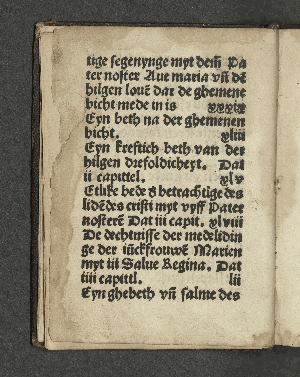 tige segenynge myt dem̄ Pa
ter noſter Aue maria vn̄ dē
hilgen louē dar de ghemene
bicht mede in is xxxix
Eyn beth na der ghemenen
bicht. xliii
Eyn kreftich beth van der
hilgen drefoldicheyt. Dat
ii capittel. xlv
Etlike bede ꝺ betrachtige des
lidēdes criſti myt vyff Pater
noſterē Dat iii capit. xlviii
De dechtniſſe der medelidin
ge der iūckfrouwē Marien
myt iii Salue Regina. Dat
iiii capittl. lii
Eyn ghebeth vn̄ ſalme des